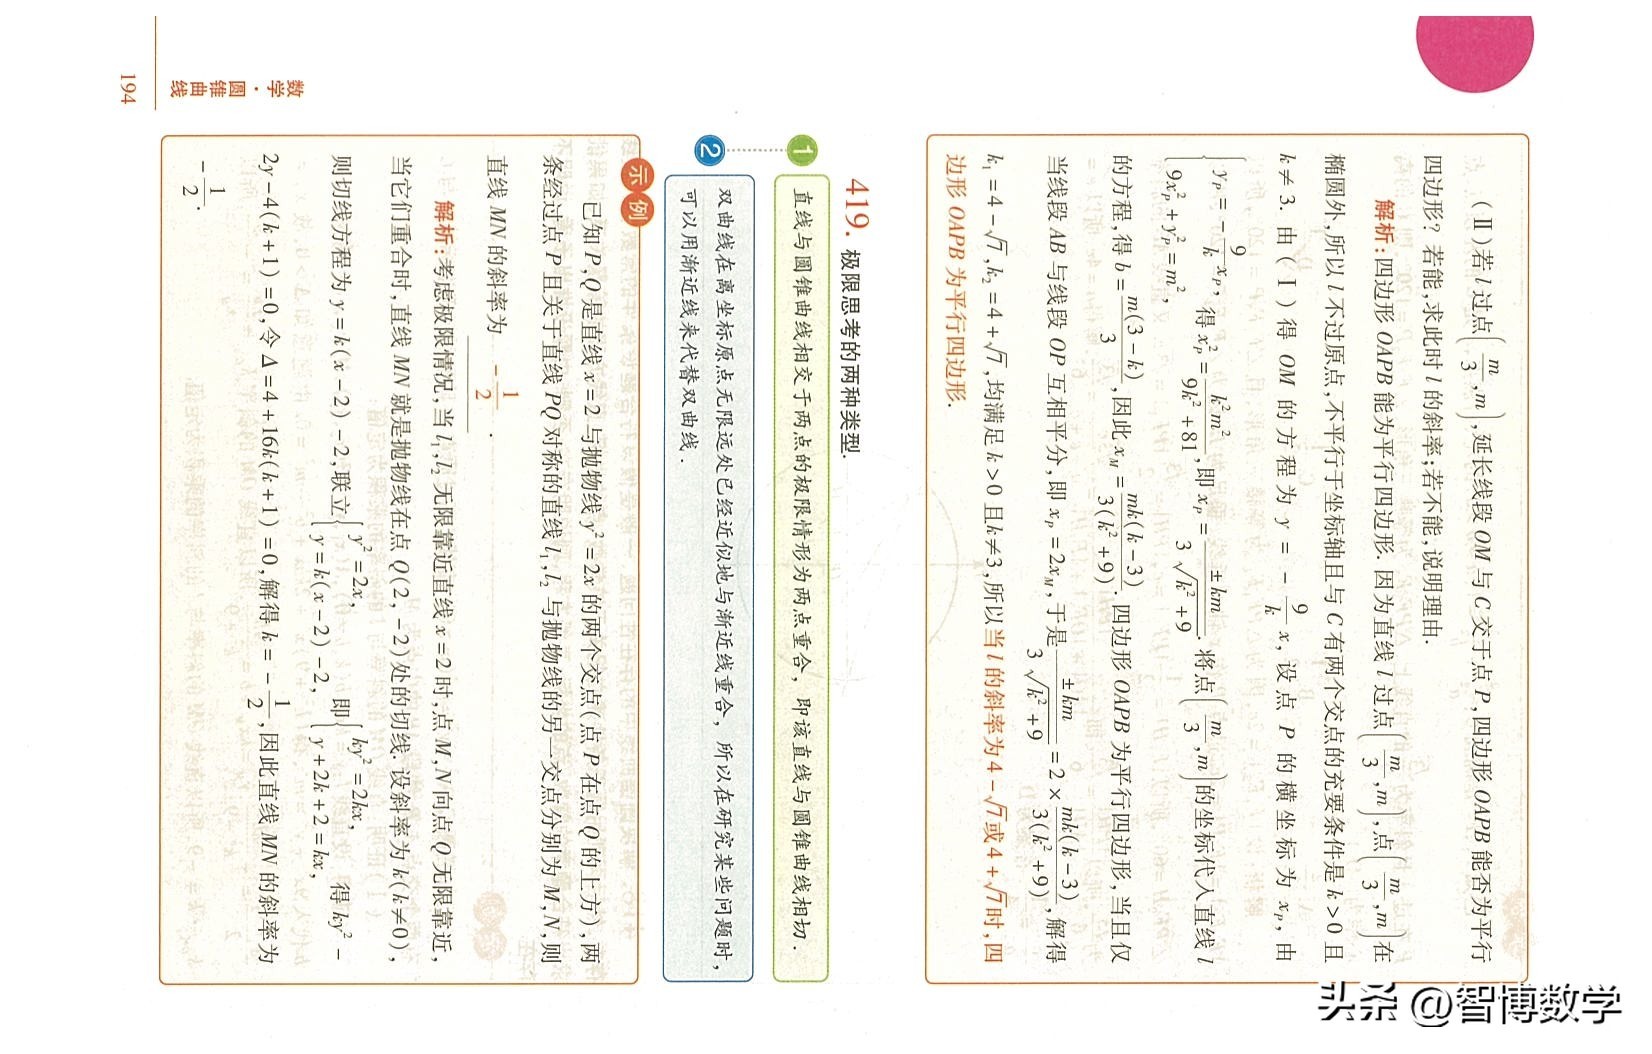 (Ⅱ)若 l 过点(m/3,m),延长线段 OM 与 C 交于点 P,四边形 OAPB 能否为平行
四边形?若能,求此时 l 的斜率;若不能,说明理由.
解析:四边形 OAPB 能为平行四边形.因为直线 l 过点(m/3,m),点(m/3,m)在
椭圆外,所以 l 不过原点,不平行于坐标轴且与 C 有两个交点的充要条件是 k>0 且
k≠3.由(Ⅰ)得 OM 的方程为 y=-9/k x,设点 P 的横坐标为 x_P,由
{y_P=-9/k x_P, 9x_P²+y_P²=m², 得 x_P²=k²m²/(9k²+81),即 x_P=±km/(3√(k²+9)).将点(m/3,m)的坐标代入直线 l
的方程,得 b=m(3-k)/3,因此 x_M=mk(k-3)/(3(k²+9)).四边形 OAPB 为平行四边形,当且仅
当线段 AB 与线段 OP 互相平分,即 x_P=2x_M,于是 ±km/(3√(k²+9))=2×mk(k-3)/(3(k²+9)),解得
k₁=4-√7,k₂=4+√7,均满足 k>0 且 k≠3,所以当 l 的斜率为 4-√7 或 4+√7 时,四
边形 OAPB 为平行四边形.
419. 极限思考的两种类型.
1 直线与圆锥曲线相交于两点的极限情形为两点重合,即该直线与圆锥曲线相切.
2 双曲线在离坐标原点无限远处已经近似地与渐近线重合,所以在研究某些问题时,
可以用渐近线来代替双曲线.
示例
已知 P,Q 是直线 x=2 与抛物线 y²=2x 的两个交点(点 P 在点 Q 的上方),两
条经过点 P 且关于直线 PQ 对称的直线 l₁,l₂ 与抛物线的另一交点分别为 M,N,则
直线 MN 的斜率为 -1/2 .
解析:考虑极限情况,当 l₁,l₂ 无限靠近直线 x=2 时,点 M,N 向点 Q 无限靠近,
当它们重合时,直线 MN 就是抛物线在点 Q(2,-2)处的切线.设斜率为 k(k≠0),
则切线方程为 y=k(x-2)-2,联立{y²=2x, y=k(x-2)-2, 即{ky²=2kx, y+2k+2=kx, 得 ky²-
2y-4(k+1)=0,令 Δ=4+16k(k+1)=0,解得 k=-1/2,因此直线 MN 的斜率为
-1/2.
数学·圆锥曲线
194
头条 @智博数学